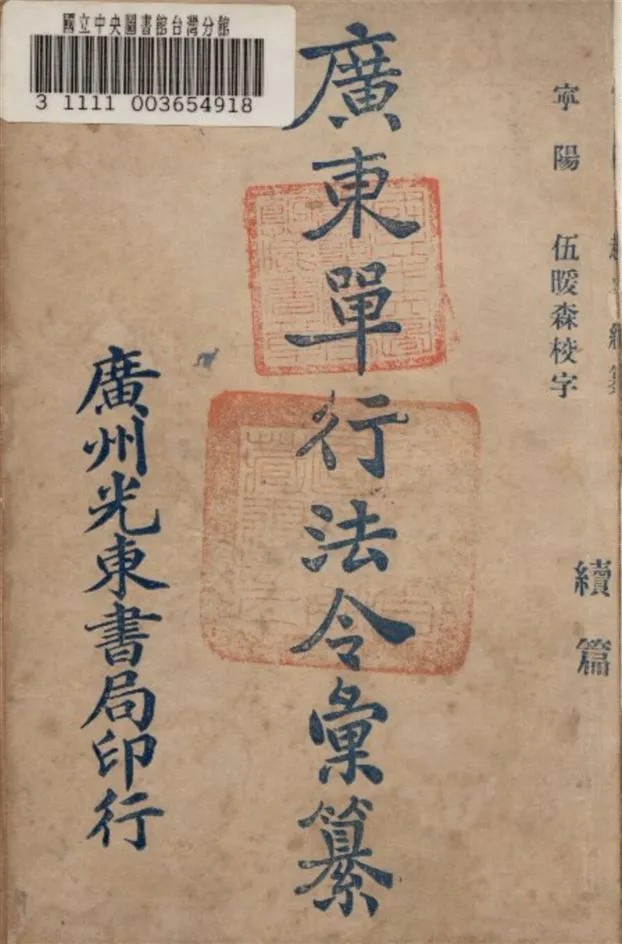 國立中央圖書館台灣分館
3 1111 003654918
寧陽 伍暖森校字
續篇
廣東單行法令彙纂
廣州光東書局印行